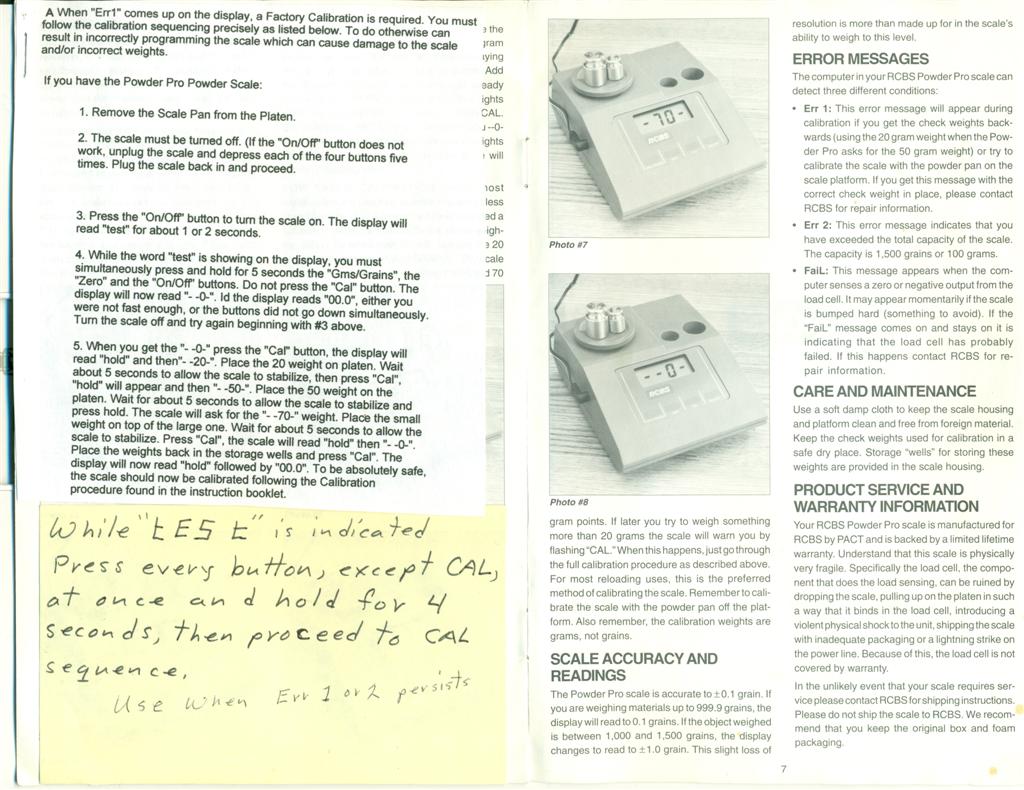 A When "Err1" comes up on the display, a Factory Calibration is required. You must
follow the calibration sequencing precisely as listed below. To do otherwise can
result in incorrectly programming the scale which can cause damage to the scale
and/or incorrect weights.
If you have the Powder Pro Powder Scale:
1. Remove the Scale Pan from the Platen.
2. The scale must be turned off. (If the "On/Off" button does not
work, unplug the scale and depress each of the four buttons five
times. Plug the scale back in and proceed.
3. Press the "On/Off" button to turn the scale on. The display will
read "test" for about 1 or 2 seconds.
4. While the word "test" is showing on the display, you must
simultaneously press and hold for 5 seconds the "Gms/Grains", the
"Zero" and the "On/Off" buttons. Do not press the "Cal" button. The
display will now read "- -0-". Id the display reads "00.0", either you
were not fast enough, or the buttons did not go down simultaneously.
Turn the scale off and try again beginning with #3 above.
5. When you get the "- -0-" press the "Cal" button, the display will
read "hold" and then"- -20-". Place the 20 weight on platen. Wait
about 5 seconds to allow the scale to stabilize, then press "Cal",
"hold" will appear and then "- -50-". Place the 50 weight on the
platen. Wait for about 5 seconds to allow the scale to stabilize and
press hold. The scale will ask for the "- -70-" weight. Place the small
weight on top of the large one. Wait for about 5 seconds to allow the
scale to stabilize. Press "Cal", the scale will read "hold" then "- -0-".
Place the weights back in the storage wells and press "Cal". The
display will now read "hold" followed by "00.0". To be absolutely safe,
the scale should now be calibrated following the Calibration
procedure found in the instruction booklet.
While "tESt" is indicated
Press every button, except CAL,
at once and hold for 4
seconds, then proceed to CAL
sequence.
Use when Err 1 or 2 persists
the
Add
CAL.
will
less
ed a
20
70
-70-
RCBS
Photo #7
--0-
RCBS
Photo #8
gram points. If later you try to weigh something
more than 20 grams the scale will warn you by
flashing "CAL." When this happens, just go through
the full calibration procedure as described above.
For most reloading uses, this is the preferred
method of calibrating the scale. Remember to cali-
brate the scale with the powder pan off the plat-
form. Also remember, the calibration weights are
grams, not grains.
SCALE ACCURACY AND
READINGS
The Powder Pro scale is accurate to ±0.1 grain. If
you are weighing materials up to 999.9 grains, the
display will read to 0.1 grains. If the object weighed
is between 1,000 and 1,500 grains, the display
changes to read to ±1.0 grain. This slight loss of
resolution is more than made up for in the scale's
ability to weigh to this level.
ERROR MESSAGES
The computer in your RCBS Powder Pro scale can
detect three different conditions:
• Err 1: This error message will appear during
calibration if you get the check weights back-
wards (using the 20 gram weight when the Pow-
der Pro asks for the 50 gram weight) or try to
calibrate the scale with the powder pan on the
scale platform. If you get this message with the
correct check weight in place, please contact
RCBS for repair information.
• Err 2: This error message indicates that you
have exceeded the total capacity of the scale.
The capacity is 1,500 grains or 100 grams.
• FaiL: This message appears when the com-
puter senses a zero or negative output from the
load cell. It may appear momentarily if the scale
is bumped hard (something to avoid). If the
"FaiL" message comes on and stays on it is
indicating that the load cell has probably
failed. If this happens contact RCBS for re-
pair information.
CARE AND MAINTENANCE
Use a soft damp cloth to keep the scale housing
and platform clean and free from foreign material.
Keep the check weights used for calibration in a
safe dry place. Storage "wells" for storing these
weights are provided in the scale housing.
PRODUCT SERVICE AND
WARRANTY INFORMATION
Your RCBS Powder Pro scale is manufactured for
RCBS by PACT and is backed by a limited lifetime
warranty. Understand that this scale is physically
very fragile. Specifically the load cell, the compo-
nent that does the load sensing, can be ruined by
dropping the scale, pulling up on the platen in such
a way that it binds in the load cell, introducing a
violent physical shock to the unit, shipping the scale
with inadequate packaging or a lightning strike on
the power line. Because of this, the load cell is not
covered by warranty.
In the unlikely event that your scale requires ser-
vice please contact RCBS for shipping instructions.
Please do not ship the scale to RCBS. We recom-
mend that you keep the original box and foam
packaging.
7